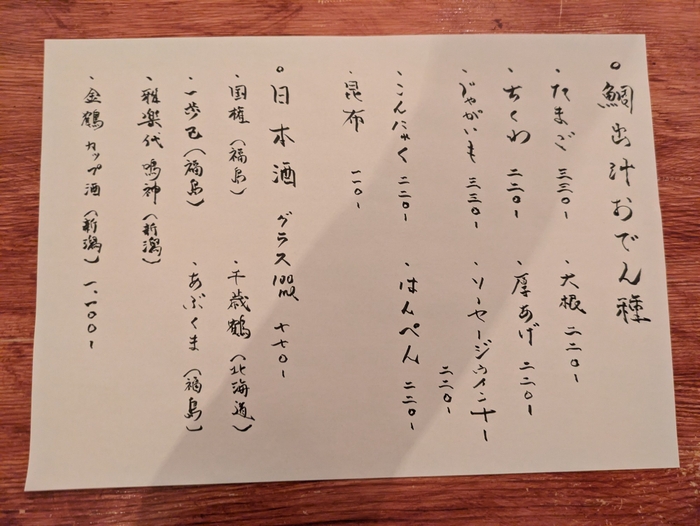 ○鯛出汁おでん種
・たまご 三三〇-
・大根 二二〇-
・ちくわ 二二〇-
・厚あげ 二二〇-
・じゃがいも 三三〇-
・ソーセージウィンナー 二二〇-
・こんにゃく 二二〇-
・はんぺん 二二〇-
・昆布 一一〇-
○日本酒 グラス100ml 七七〇-
・国権(福島)
・千歳鶴(北海道)
・一歩己(福島)
・あぶくま(福島)
・雅楽代 鳴神(新潟)
・金鶴 カップ酒(新潟) 一、一〇〇-